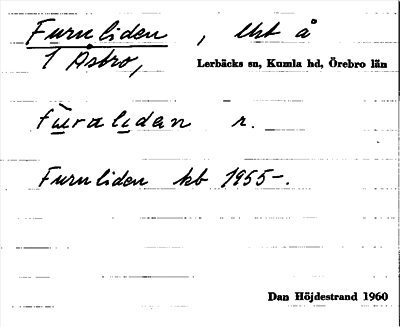 Furuliden, lht å
1 Åsbro,
Lerbäcks sn, Kumla hd, Örebro län
fu̲ralı̲dan r.
Furuliden kb 1955-.
Dan Höjdestrand 1960